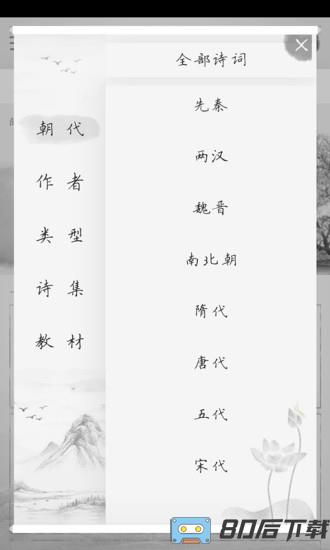 全部诗词
朝代
作者
类型
诗集
教材
先秦
两汉
魏晋
南北朝
隋代
唐代
五代
宋代
80后下载